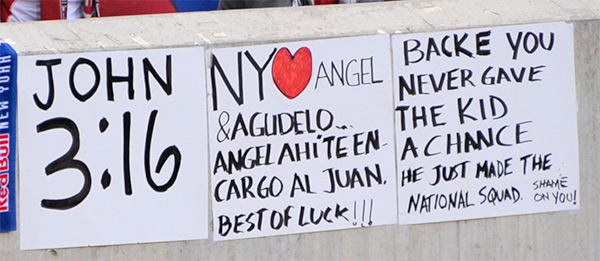 Red Bull NEW YORK
JOHN
3:16
NY❤ANGEL
& AGUDELO...
ANGEL AHI TE EN-
CARGO AL JUAN.
BEST OF LUCK!!!
BACKE YOU
NEVER GAVE
THE KID
A CHANCE
HE JUST MADE THE
NATIONAL SQUAD. SHAME
ON YOU!